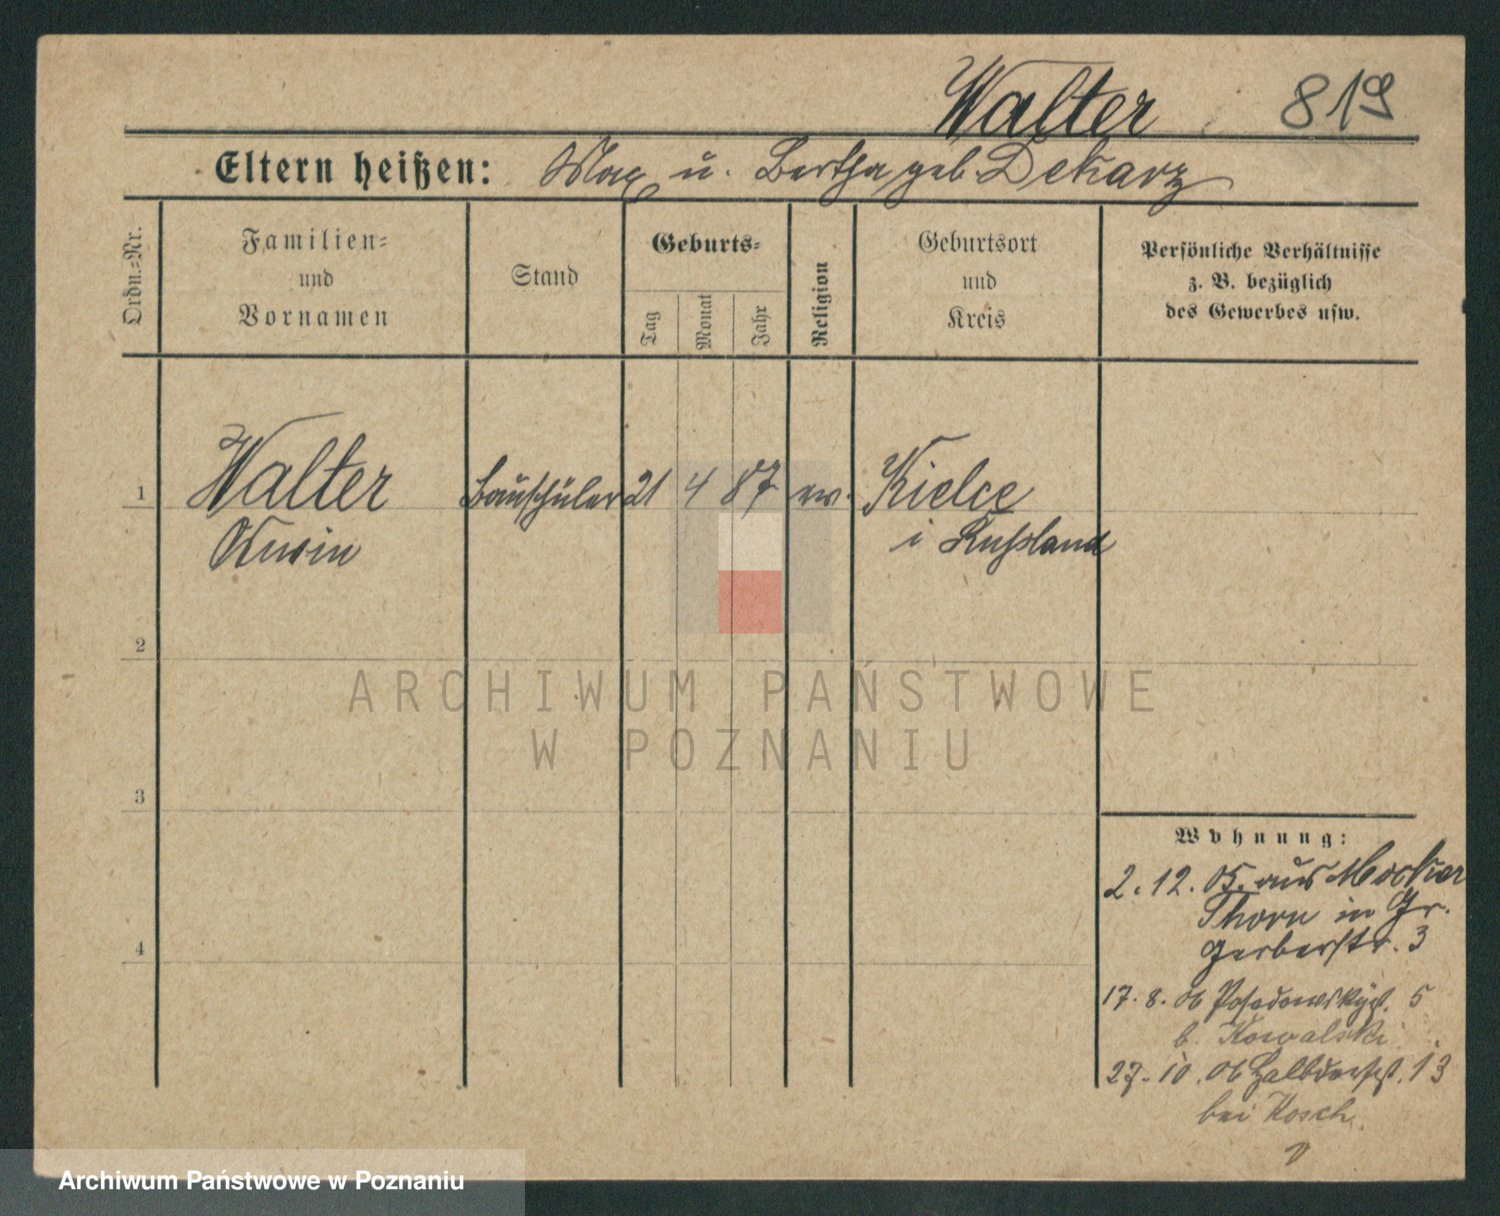 Walter 819
Eltern heißen: Max u. Bertha geb. Dekarz
Ordn.=Nr.
Familien=
und
Vornamen
Stand
Geburts=
Tag
Monat
Jahr
Religion
Geburtsort
und
Kreis
Persönliche Verhältnisse
z. B. bezüglich
des Gewerbes usw.
1 Walter Bauschüler 21 4 87 ev. Kielce
Erwin i Russland
2
3
4
Wohnung:
2.12. 05. aus Mocker
Thorn in Gr.
Gerberstr. 3
17. 8. 06 Posadowskyst. 5
b. Kowalski
27. 10. 06 Halbdorfst. 13
bei Kosch.
ARCHIWUM PAŃSTWOWE
W POZNANIU
Archiwum Państwowe w Poznaniu